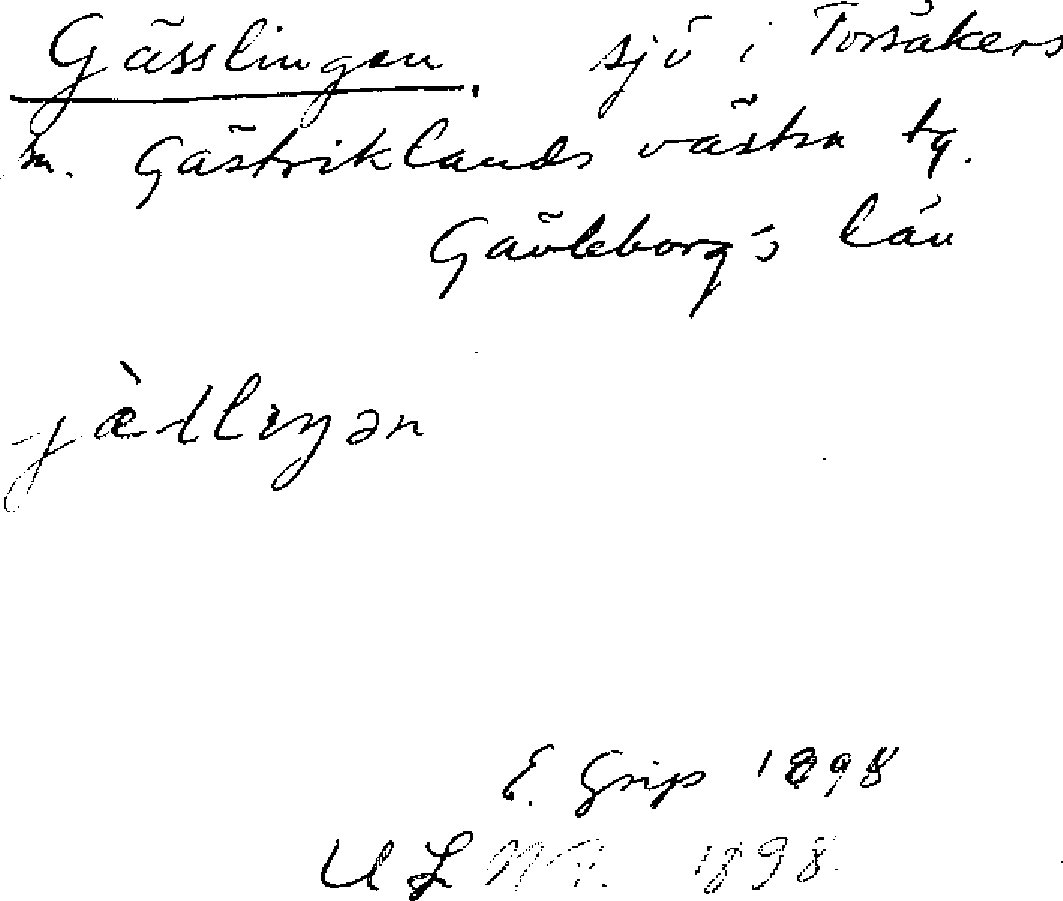 Gässlingen. sjö i Torsåkers
sn. Gästriklands västra tg.
Gävleborgs län
E. Grip 1898
U L 1898